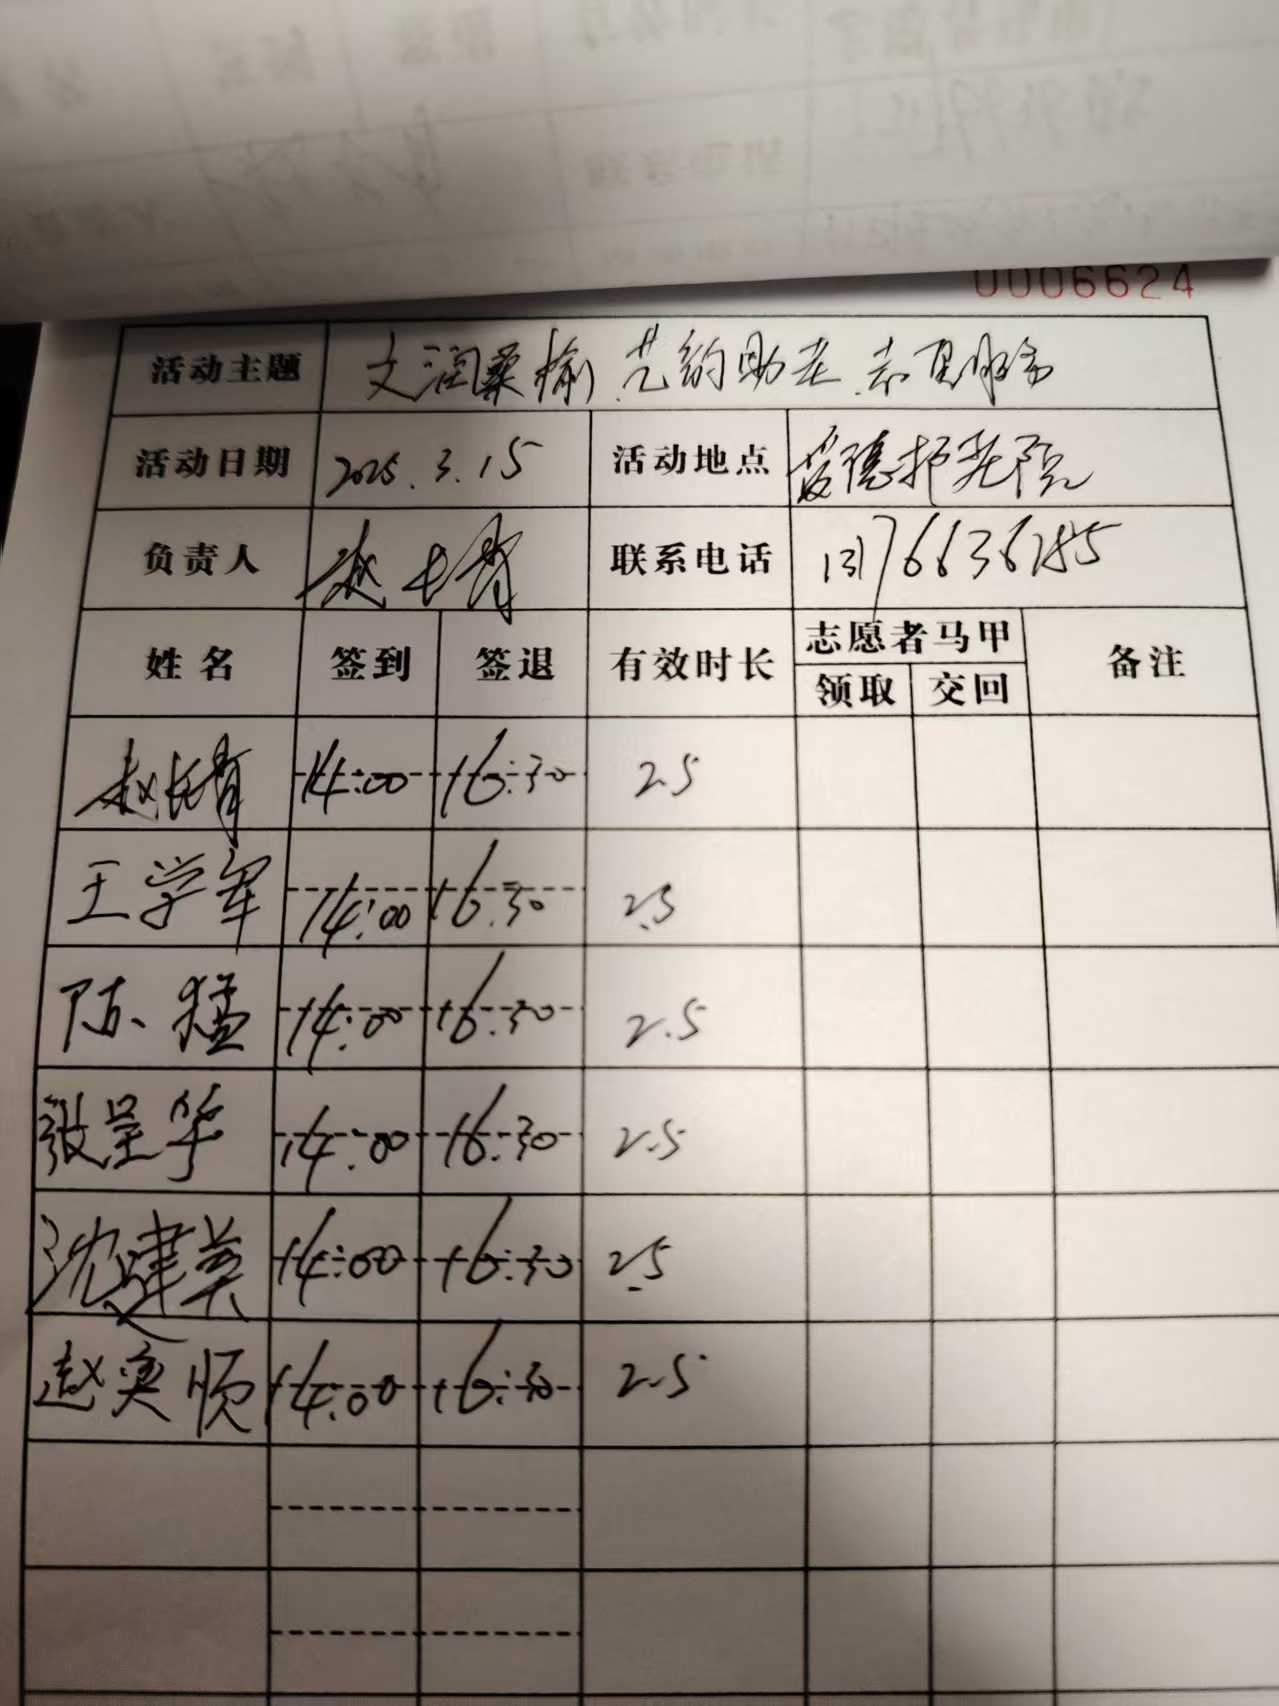 0006624
活动主题 文润桑榆 艺韵助老 志愿服务
活动日期 2025.3.15 活动地点 爱德护老院
负责人 赵长青 联系电话
姓名 签到 签退 有效时长 志愿者马甲 备注
领取 交回
赵长青 14:00 16:30 2.5
王学军 14:00 16:30 2.5
陈猛 14:00 16:30 2.5
张呈华 14:00 16:30 2.5
沈建英 14:00 16:30 2.5
赵奕顺 14:00 16:30 2.5